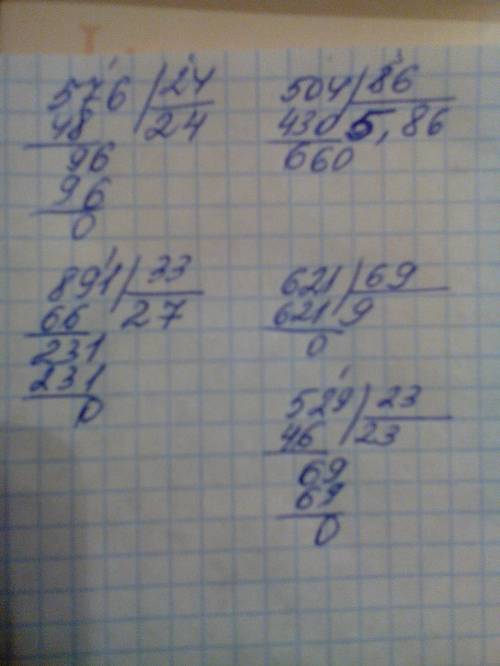 576 24
48 24
96
96
0
504 86
430 5,86
660
891 33
66 27
231
231
0
621 69
621 9
0
529 23
46 23
69
69
0